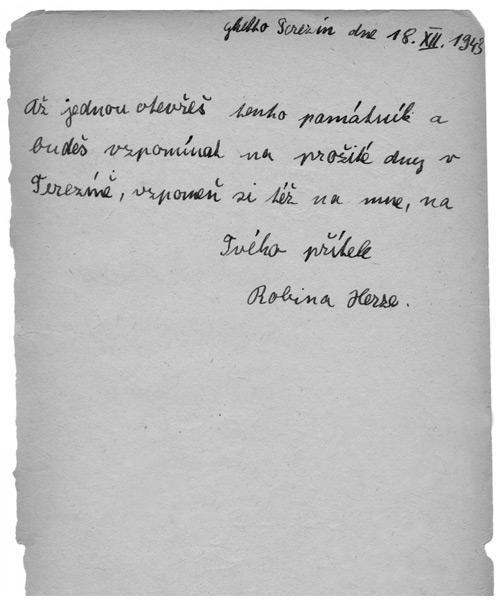 ghetto Terezín dne 18. XII. 1943
Až jednou otevřeš tento památník a
budeš vzpomínat na prožité dny v
Terezíně, vzpomeň si též na mne, na
Tvého přítele
Robina Herze.